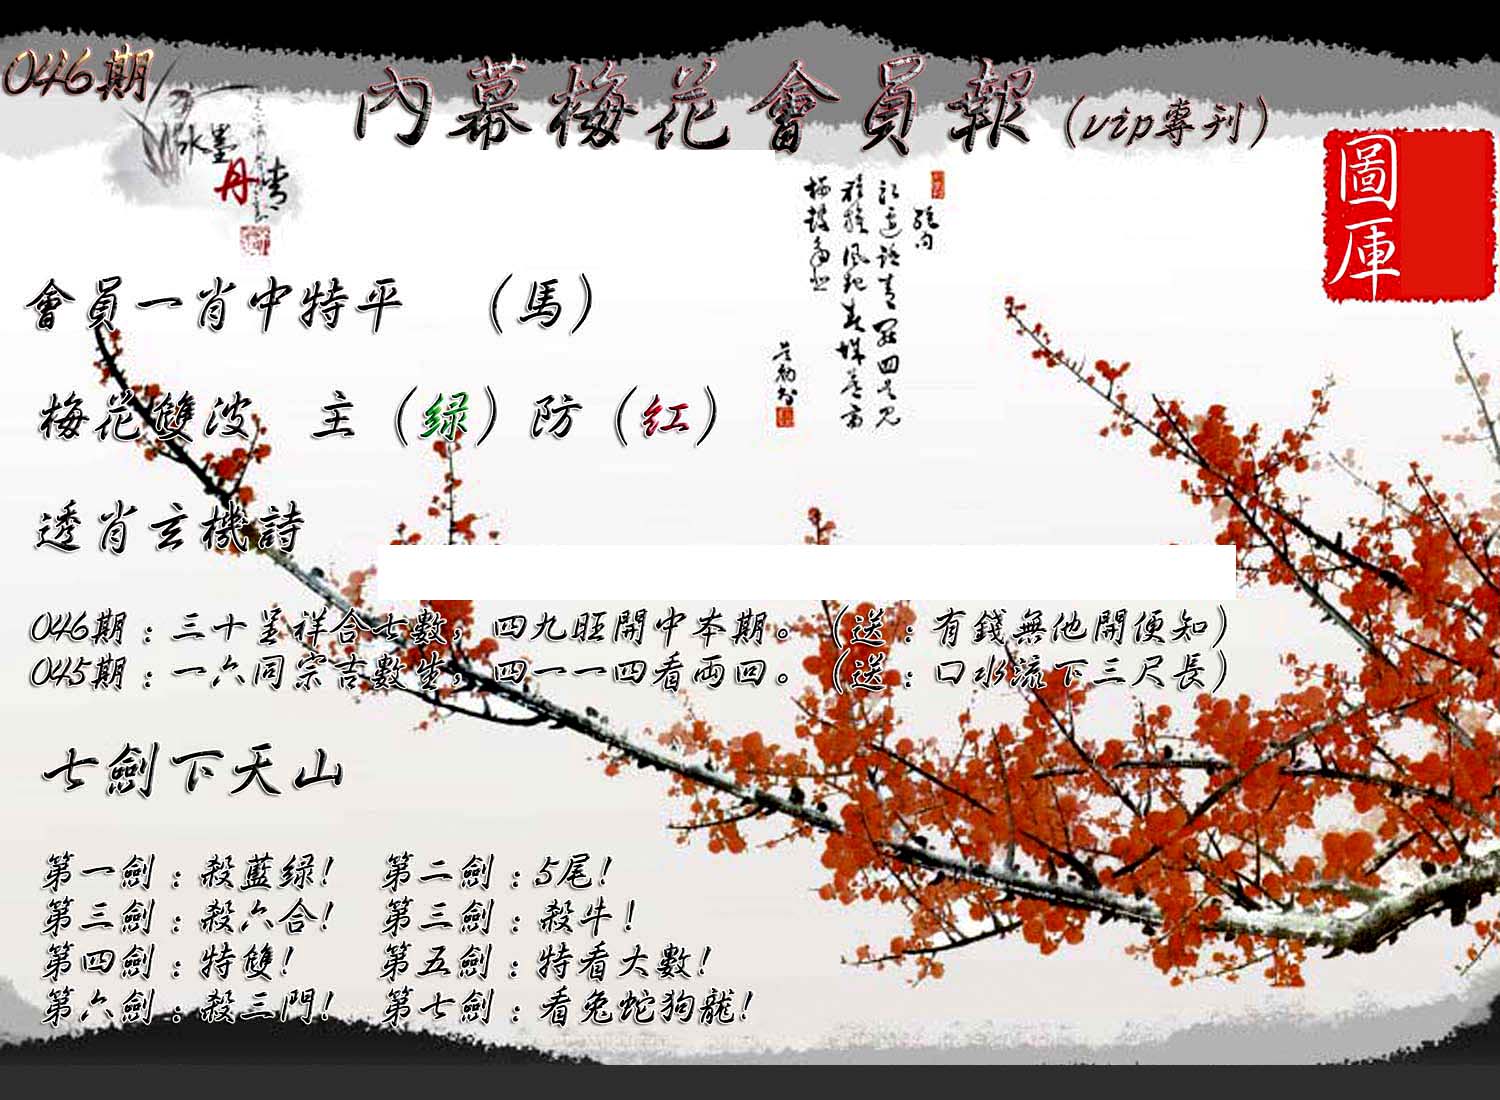 046期
內幕梅花會員報(vip專刊)
水墨
丹青
圖庫
會員一肖中特平 (馬)
梅花雙波 主(绿)防(红)
透肖玄機詩
046期:三十呈祥合七數,四九旺開中本期。(送:有錢無他開便知)
045期:一六同宗吉數生,四一一四看兩回。(送:口水流下三尺長)
七劍下天山
第一劍:殺藍绿! 第二劍:5尾!
第三劍:殺六合! 第三劍:殺牛!
第四劍:特雙! 第五劍:特看大數!
第六劍:殺三門! 第七劍:看兔蛇狗龍!